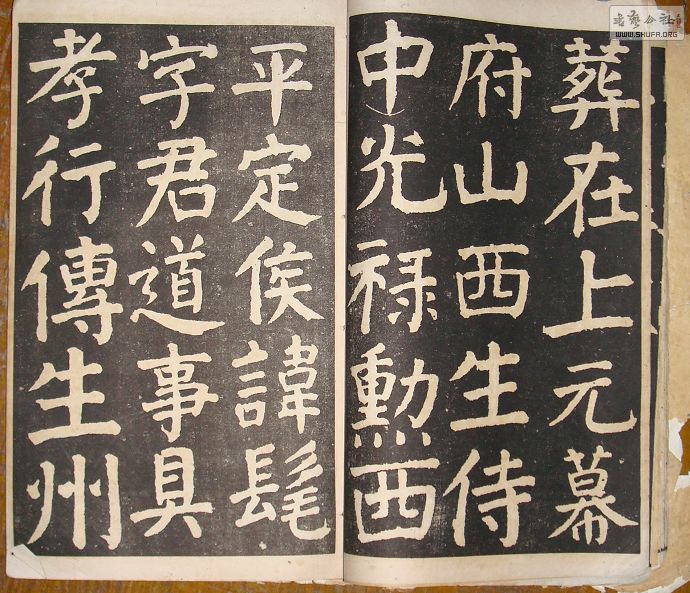 葬在上元幕
府山西生侍
中光禄勳西
平定侯諱髦
字君道事具
孝行傳生州
書藝公社
WWW.SHUFA.ORG